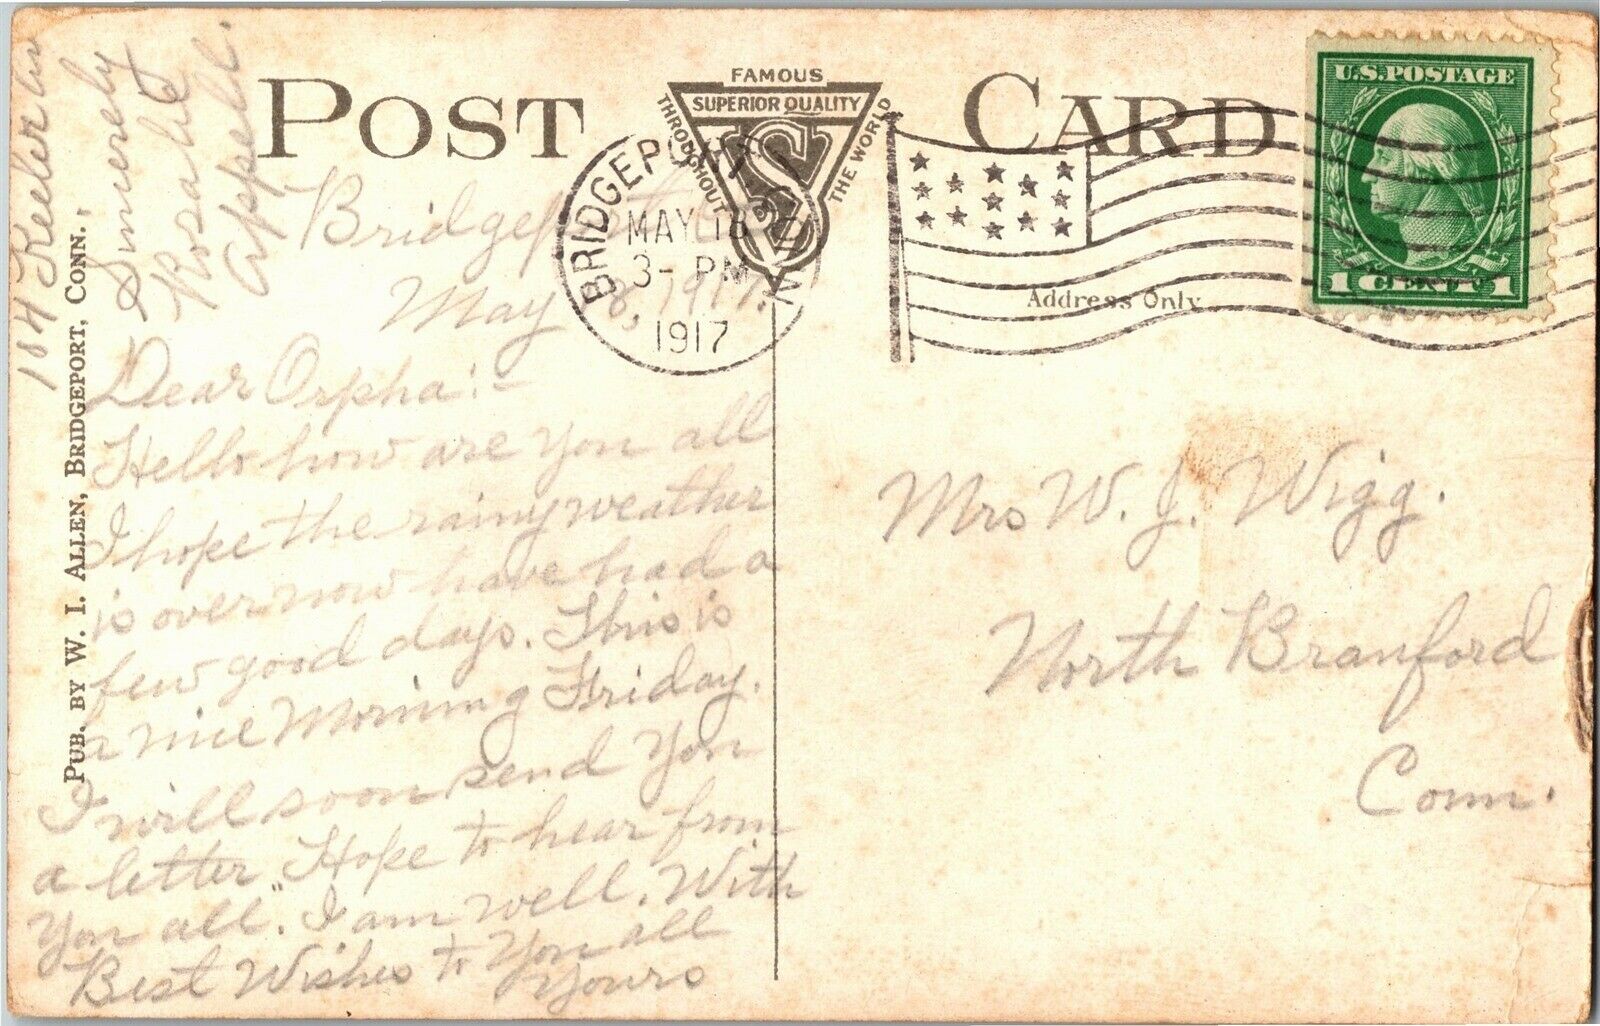 POST CARD
FAMOUS
SUPERIOR QUALITY
THROUGHOUT
THE WORLD
S
BRIDGEPORT
CONN
MAY 18
3- PM
1917
U.S. POSTAGE
1 CENT 1
Address Only
Bridgeport
May 18, 1917.
Dear Orpha:-
Hello how are you all
I hope the rainy weather
is over now have had a
few good days. This is
a nice Morning Friday.
I will soon send You
a letter Hope to hear from
You all." I am well. With
Best Wishes to You all
Yours
Sincerely
Rosalie
Appell.
184 Keeler
Mrs W. J. Wigg.
North Branford
Conn.
PUB. BY W. I. ALLEN, BRIDGEPORT, CONN.